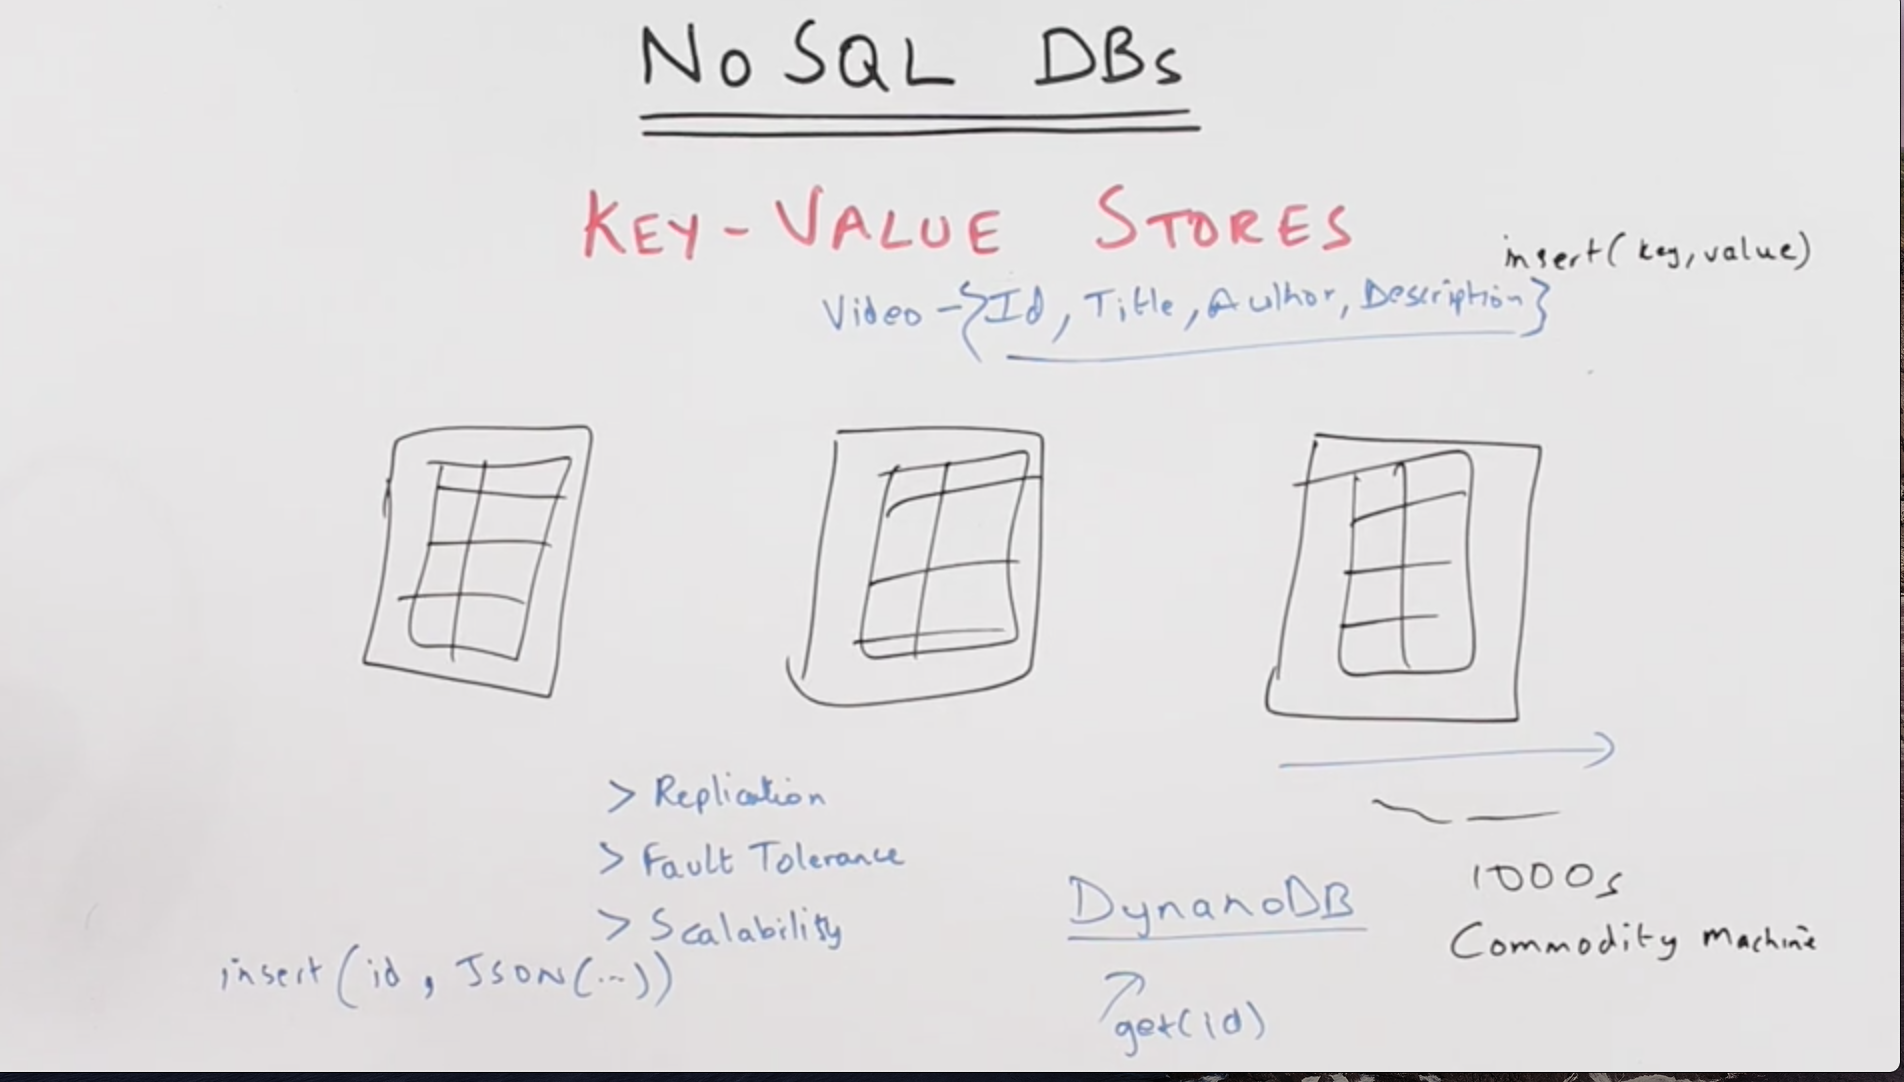 No SQL DBs
KEY-VALUE STORES
insert( key, value)
Video -{Id, Title, Author, Description}
> Replication
> Fault Tolerance
> Scalability
insert(id, JSON(...))
DynanoDB
get(id)
1000s
Commodity machine